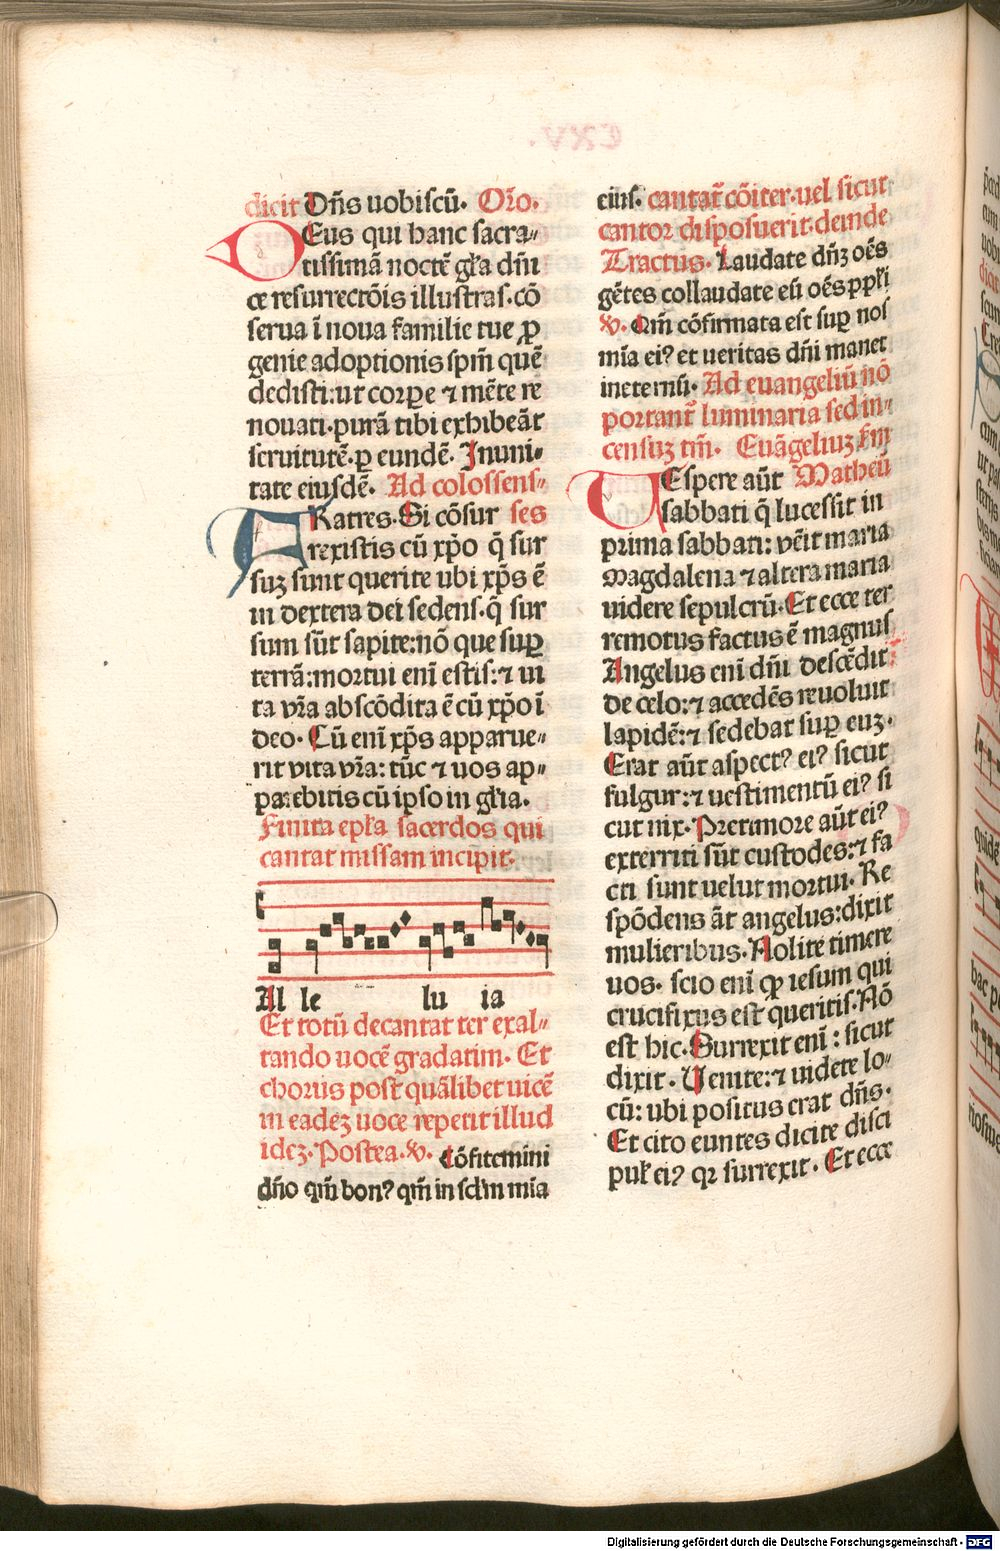 dicit Dñs uobiscũ. Oro.
DEus qui hanc sacra-
tissimã noctẽ gła dñi
ce resurrectõis illustras.cõ
serua ĩ noua familie tue ꝓ
genie adoptionis spm̃ quẽ
dedisti:ut corꝑe ⁊ mẽte re
nouati.purã tibi exhibeãt
seruitutẽ.ꝑ eundẽ. Jn uni-
tate eiusdẽ. Ad colossens-
FRatres.Si cõsur ses
rexistis cũ xp̃o q̃ sur
suꝫ sunt querite ubi xp̃s ẽ
in dextera dei sedens.q̃ sur
sum sũt sapite:nõ que suꝑ
terrã:mortui enĩ estis:⁊ ui
ta vr̃a abscõdita ẽ cũ xp̃o ĩ
deo. Cũ enĩ xp̃s apparue-
rit vita vr̃a:tũc ⁊ uos ap-
parebitis cũ ipso in gl̃ia.
Finita epl̃a sacerdos qui
cantat missam incipit.
Al le lu ia
Et totũ decantat ter exal-
tando uocẽ gradatim. Et
chorus post quãlibet uicẽ
in eadeꝫ uoce repetit illud
ideꝫ. Postea. v. Cõfitemini
dño qm̃ bonꝰ qm̃ in scl̃m mĩa
eius. cantat̃ cõiter.uel sicut
cantor disposuerit.deinde
Tractus. Laudate dñꝫ oẽs
gẽtes collaudate eũ oẽs ppl̃i
v. Qm̃ cõfirmata est suꝑ nos
mĩa eiꝰ et ueritas dñi manet
in eternũ. Ad euangeliũ nõ
portant̃ luminaria sed in-
censuꝫ tm̃. Euãgeliuꝫ sm̃
VEspere aũt Matheũ
sabbati q̃ lucessit in
prima sabbati: vẽit maria
magdalena ⁊ altera maria
uidere sepulcrũ. Et ecce ter
remotus factus ẽ magnus
Angelus enĩ dñi descẽdit
de celo:⁊ accedẽs reuoluit
lapidẽ:⁊ sedebat suꝑ euꝫ.
Erat aũt aspectꝰ eiꝰ sicut
fulgur:⁊ uestimentũ eiꝰ si
cut nix. Pre timore aũt eiꝰ
exterriti sũt custodes:⁊ fa
cti sunt uelut mortui. Re
spõdens ãt angelus:dixit
mulieribus. Nolite timere
uos. scio enĩ ꝙ iesum qui
crucifixus est queritis. Nõ
est hic. Surrexit enĩ : sicut
dixit. Uenite:⁊ uidete lo-
cũ: ubi positus erat dñs.
Et cito euntes dicite disci
pul̃ eiꝰ qꝛ surrexit. Et ecce
Digitalisierung gefördert durch die Deutsche Forschungsgemeinschaft - DFG